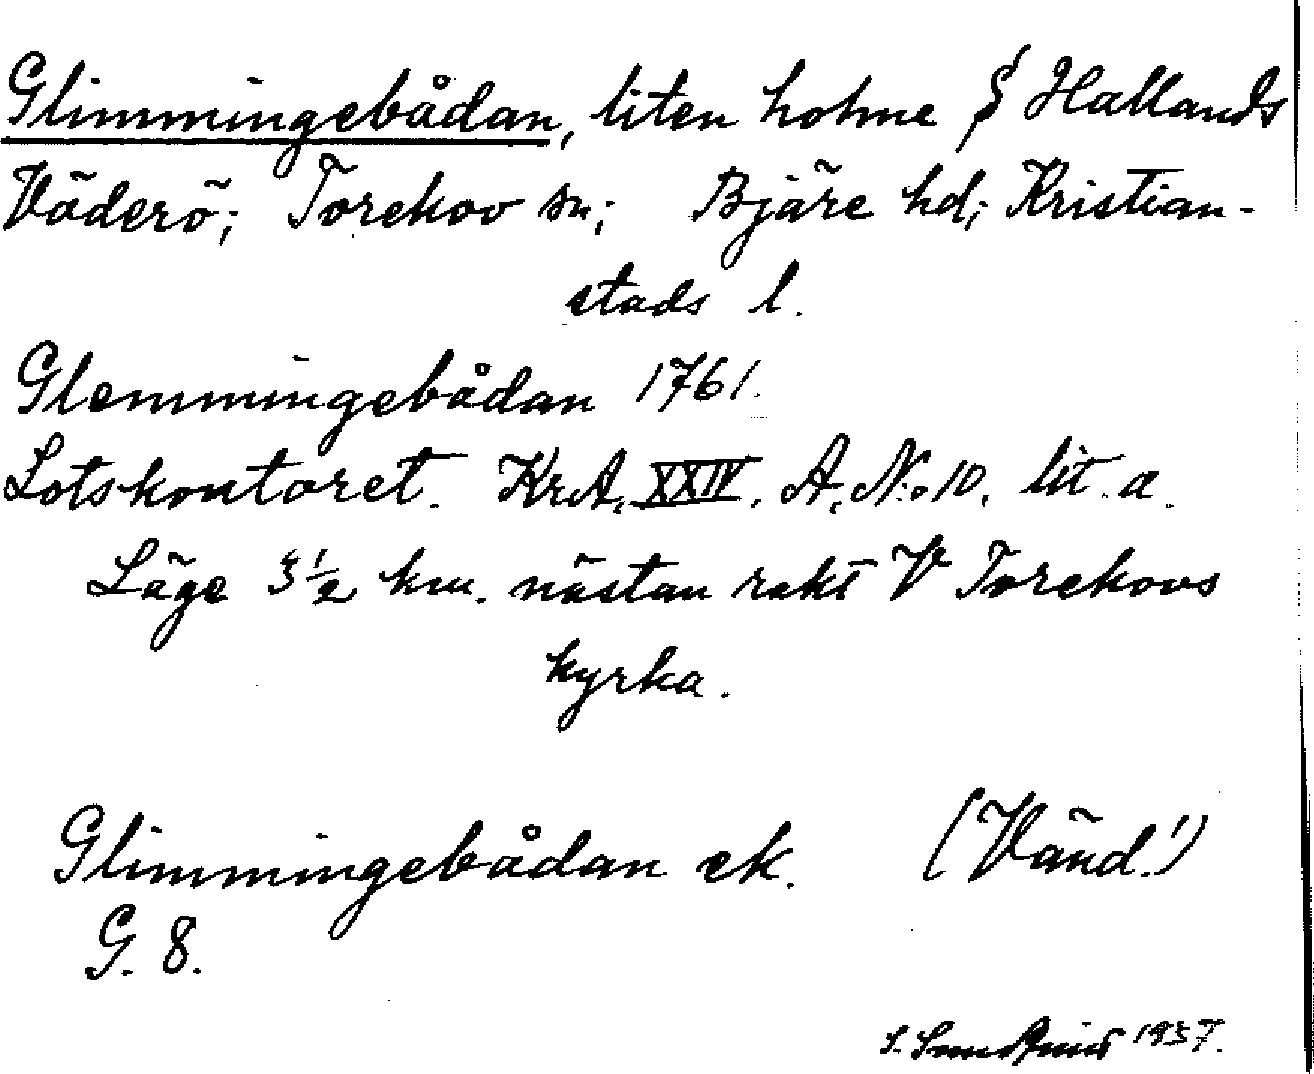 Glimmingebådan, liten holme S Hallands
Väderö; Torekov sn; Bjäre hd; Kristian-
stads l.
Glemmingebådan 1761.
Lotskontoret. KrA. XXIV. A. N:o 10. lit. a.
Läge 3 1/2 km. nästan rakt V Torekovs
kyrka.
Glimmingebådan ek. (Vänd!)
G. 8.
S. 1937.